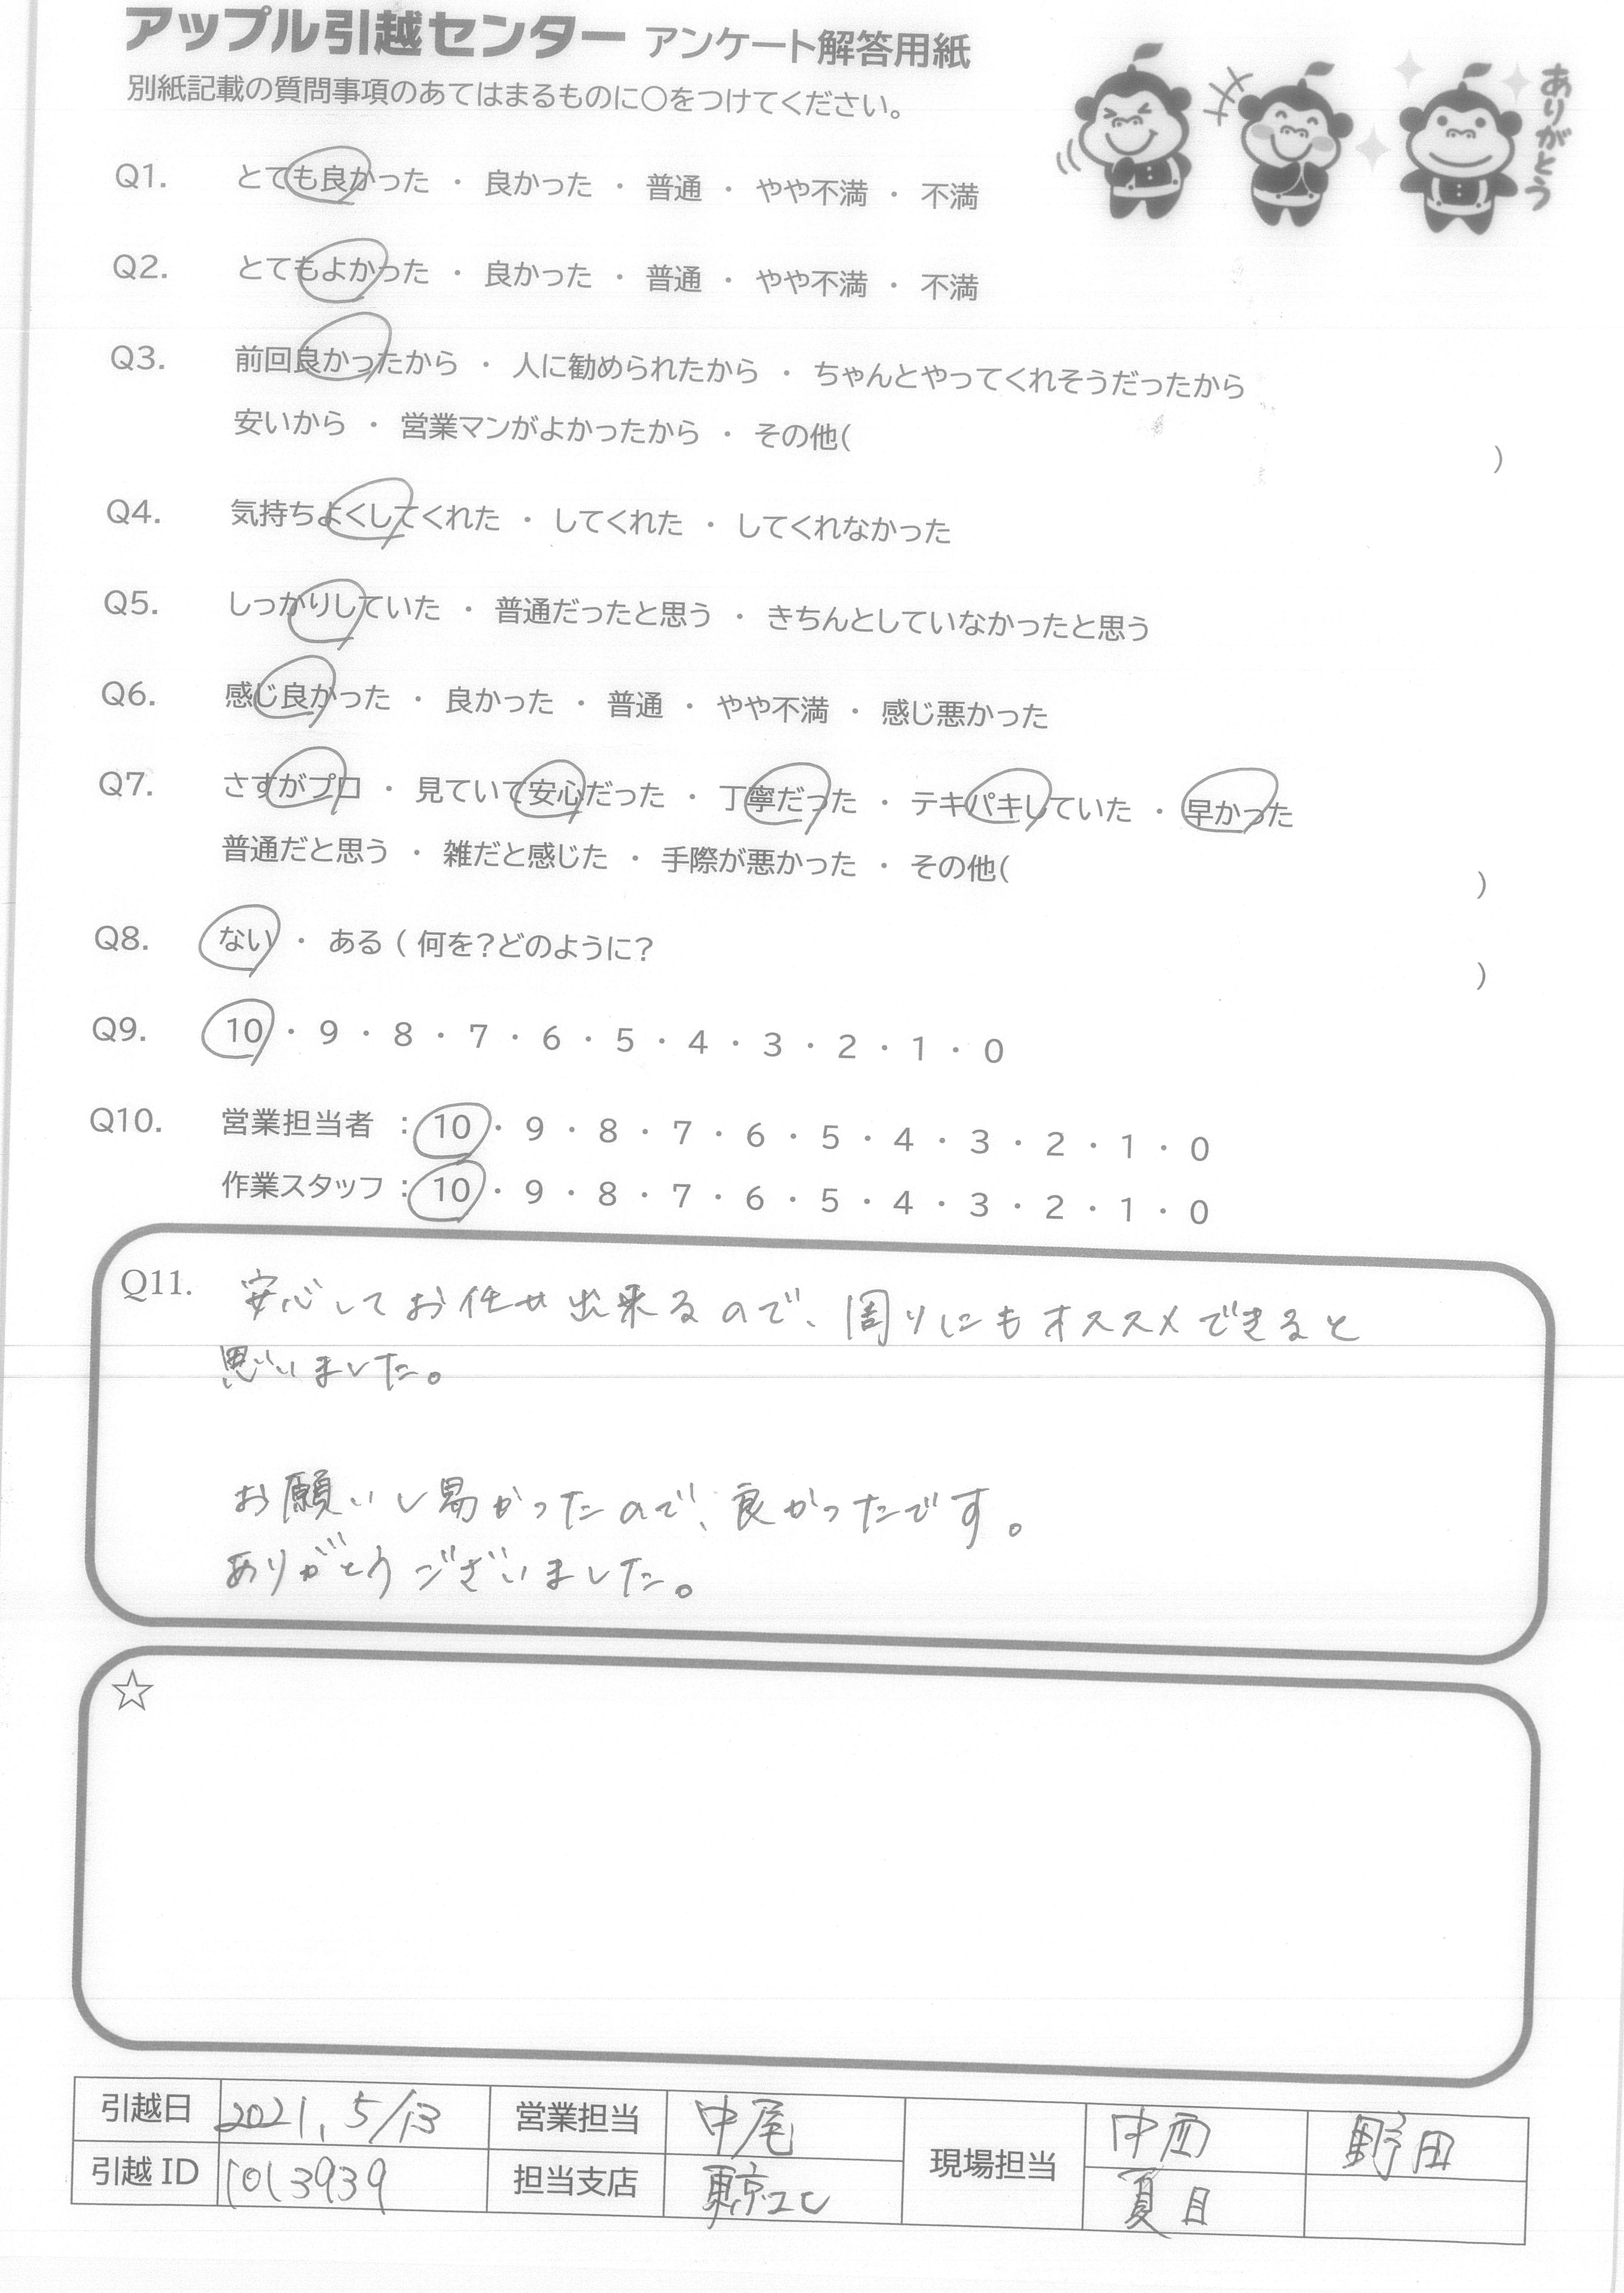 アップル引越センター アンケート解答用紙
別紙記載の質問事項のあてはまるものに〇をつけてください。
ありがとう
Q1. とても良かった ・ 良かった ・ 普通 ・ やや不満 ・ 不満
Q2. とてもよかった ・ 良かった ・ 普通 ・ やや不満 ・ 不満
Q3. 前回良かったから ・ 人に勧められたから ・ ちゃんとやってくれそうだったから
安いから ・ 営業マンがよかったから ・ その他( )
Q4. 気持ちよくしてくれた ・ してくれた ・ してくれなかった
Q5. しっかりしていた ・ 普通だったと思う ・ きちんとしていなかったと思う
Q6. 感じ良かった ・ 良かった ・ 普通 ・ やや不満 ・ 感じ悪かった
Q7. さすがプロ ・ 見ていて安心だった ・ 丁寧だった ・ テキパキしていた ・ 早かった
普通だと思う ・ 雑だと感じた ・ 手際が悪かった ・ その他( )
Q8. ない ・ ある ( 何を?どのように? )
Q9. 10 ・ 9 ・ 8 ・ 7 ・ 6 ・ 5 ・ 4 ・ 3 ・ 2 ・ 1 ・ 0
Q10. 営業担当者 : 10 ・ 9 ・ 8 ・ 7 ・ 6 ・ 5 ・ 4 ・ 3 ・ 2 ・ 1 ・ 0
作業スタッフ : 10 ・ 9 ・ 8 ・ 7 ・ 6 ・ 5 ・ 4 ・ 3 ・ 2 ・ 1 ・ 0
Q11. 安心してお任せ出来るので、周りにもオススメできると
思いました。
お願いし易かったので、良かったです。
ありがとうございました。
☆
引越日 2021, 5/13 営業担当 中尾 現場担当 中西 野田
引越 ID 1013939 担当支店 東京エc 夏目